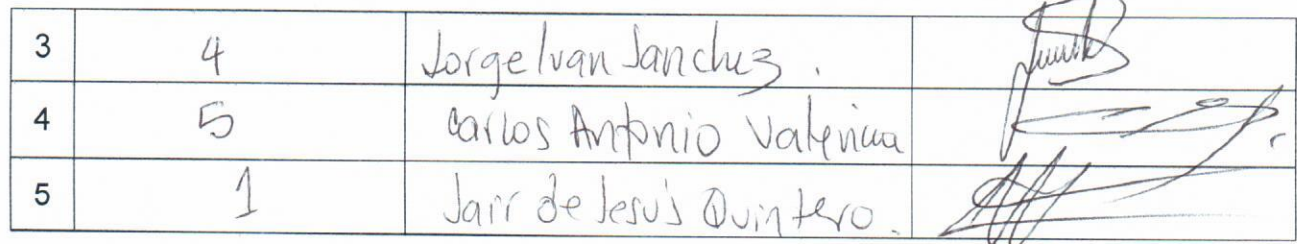 3 4 Jorge Ivan Sanchez.
4 5 Carlos Antonio Valencia
5 1 Jair de Jesús Quintero.